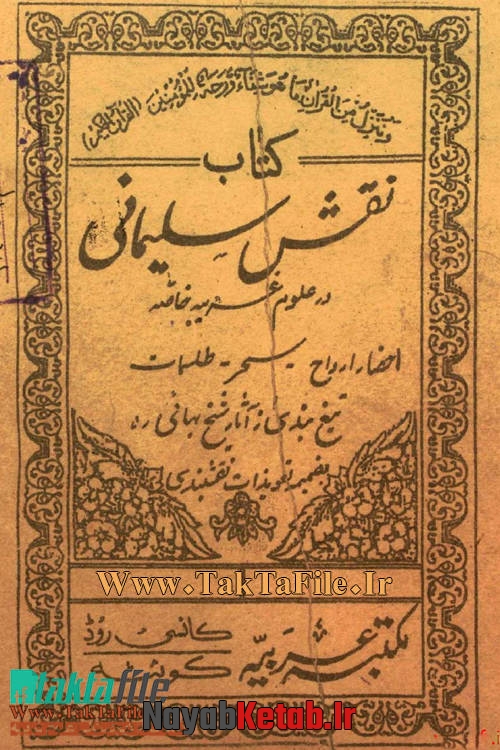 وننزل من القرآن ما هو شفاء ورحمة للمؤمنين (القرآن الحکیم)
کتاب
نقش سلیمانی
در علوم غریبه خاصه
احضار ارواح - سحر - طلسمات
تیغ بندی از آثار شیخ بهائی ره
بضمیمه تعویذات نقشبندی
Www.TakTaFile.Ir
مکتبه عربیه
کانسی روڈ
کوئٹه
taktafile
Www.TakTaFile.Ir
NayabKetab.Ir